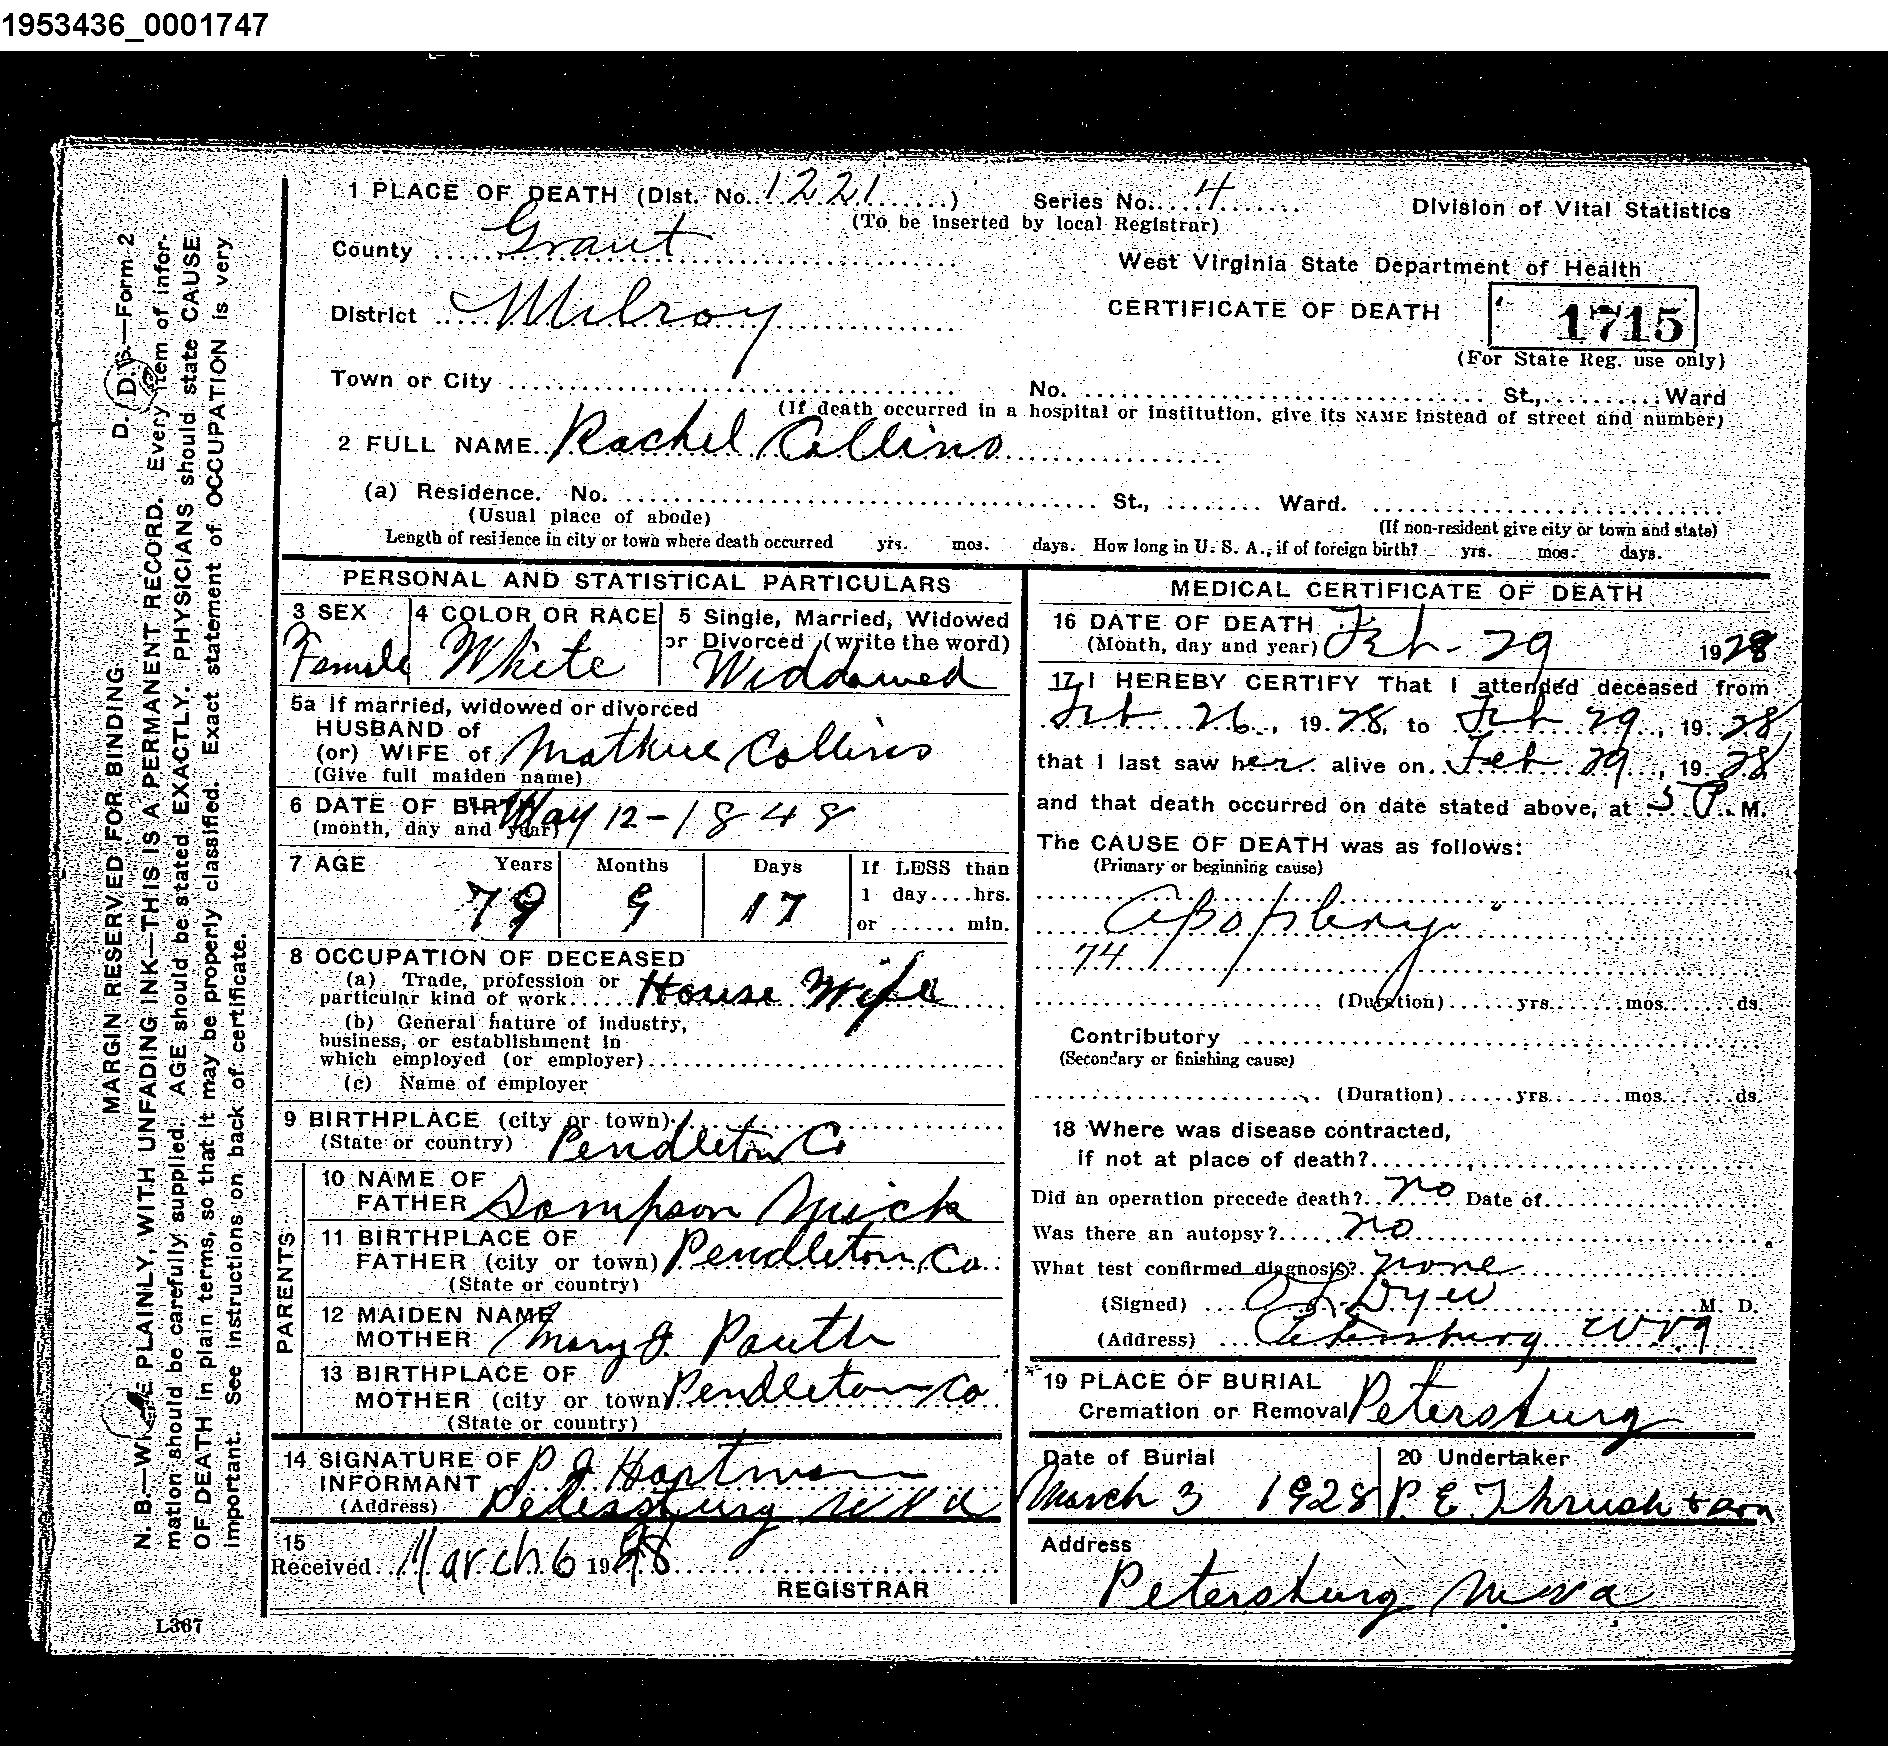 1953436_0001747
1 PLACE OF DEATH (Dist. No. 1221) Series No. 4 Division of Vital Statistics
(To be inserted by local Registrar)
County Grant
West Virginia State Department of Health
District Milroy CERTIFICATE OF DEATH 1715
(For State Reg. use only)
Town or City No. St., Ward
(If death occurred in a hospital or institution, give its NAME instead of street and number)
2 FULL NAME Rachel Collins
(a) Residence. No. St., Ward.
(Usual place of abode) (If non-resident give city or town and state)
Length of residence in city or town where death occurred yrs. mos. days. How long in U. S. A., if of foreign birth? yrs. mos. days.
PERSONAL AND STATISTICAL PARTICULARS
3 SEX 4 COLOR OR RACE 5 Single, Married, Widowed
or Divorced (write the word)
Female White Widdowed
5a If married, widowed or divorced
HUSBAND of
(or) WIFE of Collins
(Give full maiden name)
6 DATE OF BIRTH May 12-1848
(month, day and year)
7 AGE Years Months Days If LESS than
1 day....hrs.
79 9 17
or ...... min.
8 OCCUPATION OF DECEASED
(a) Trade, profession or
particular kind of work House Wife
(b) General nature of industry,
business, or establishment in
which employed (or employer)
(c) Name of employer
9 BIRTHPLACE (city or town)
(State or country) Pendleton Co
PARENTS
10 NAME OF
FATHER Sampson Mick
11 BIRTHPLACE OF
FATHER (city or town) Pendleton Co.
(State or country)
12 MAIDEN NAME
MOTHER Mary J.
13 BIRTHPLACE OF
MOTHER (city or town) Pendleton Co
(State or country)
14 SIGNATURE OF
INFORMANT P J Hartman
(Address) Petersburg W Va
15
Received March 6 1928
REGISTRAR
MEDICAL CERTIFICATE OF DEATH
16 DATE OF DEATH
(Month, day and year) Feb. 29 1928
17 I HEREBY CERTIFY That I attended deceased from
Feb 26, 1928, to Feb 29, 1928
that I last saw her alive on Feb 29, 1928
and that death occurred on date stated above, at 5 P. M.
The CAUSE OF DEATH was as follows:
(Primary or beginning cause)
Apoplexy
74
(Duration) yrs. mos. ds.
Contributory
(Secondary or finishing cause)
(Duration) yrs. mos. ds.
18 Where was disease contracted,
if not at place of death?
Did an operation precede death? no Date of
Was there an autopsy? no
What test confirmed diagnosis? none
(Signed) Dyer M. D.
(Address) Petersburg W Va
19 PLACE OF BURIAL
Cremation or Removal Petersburg
Date of Burial 20 Undertaker
March 3 1928 P. E. Thrush + son
Address
Petersburg W Va
D. D. V. S.—Form 2
MARGIN RESERVED FOR BINDING
N. B.—WRITE PLAINLY, WITH UNFADING INK—THIS IS A PERMANENT RECORD. Every item of infor-
mation should be carefully supplied. AGE should be stated EXACTLY. PHYSICIANS should state CAUSE
OF DEATH in plain terms, so that it may be properly classified. Exact statement of OCCUPATION is very
important. See instructions on back of certificate.
L367